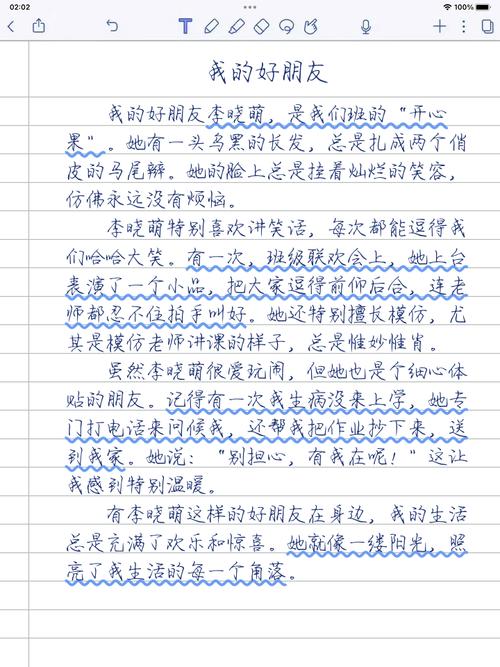 02:02
100%
我的好朋友
我的好朋友李晓萌，是我们班的“开心
果”。她有一头乌黑的长发，总是扎成两个俏
皮的马尾辫。她的脸上总是挂着灿烂的笑容，
仿佛永远没有烦恼。
李晓萌特别喜欢讲笑话，每次都能逗得我
们哈哈大笑。有一次，班级联欢会上，她上台
表演了一个小品，把大家逗得前仰后合，连老
师都忍不住拍手叫好。她还特别擅长模仿，尤
其是模仿老师讲课的样子，总是惟妙惟肖。
虽然李晓萌很爱玩闹，但她也是个细心体
贴的朋友。记得有一次我生病没来上学，她专
门打电话来问候我，还帮我把作业抄下来，送
到我家。她说：“别担心，有我在呢！”这让
我感到特别温暖。
有李晓萌这样的好朋友在身边，我的生活
总是充满了欢乐和惊喜。她就像一缕阳光，照
亮了我生活的每一个角落。